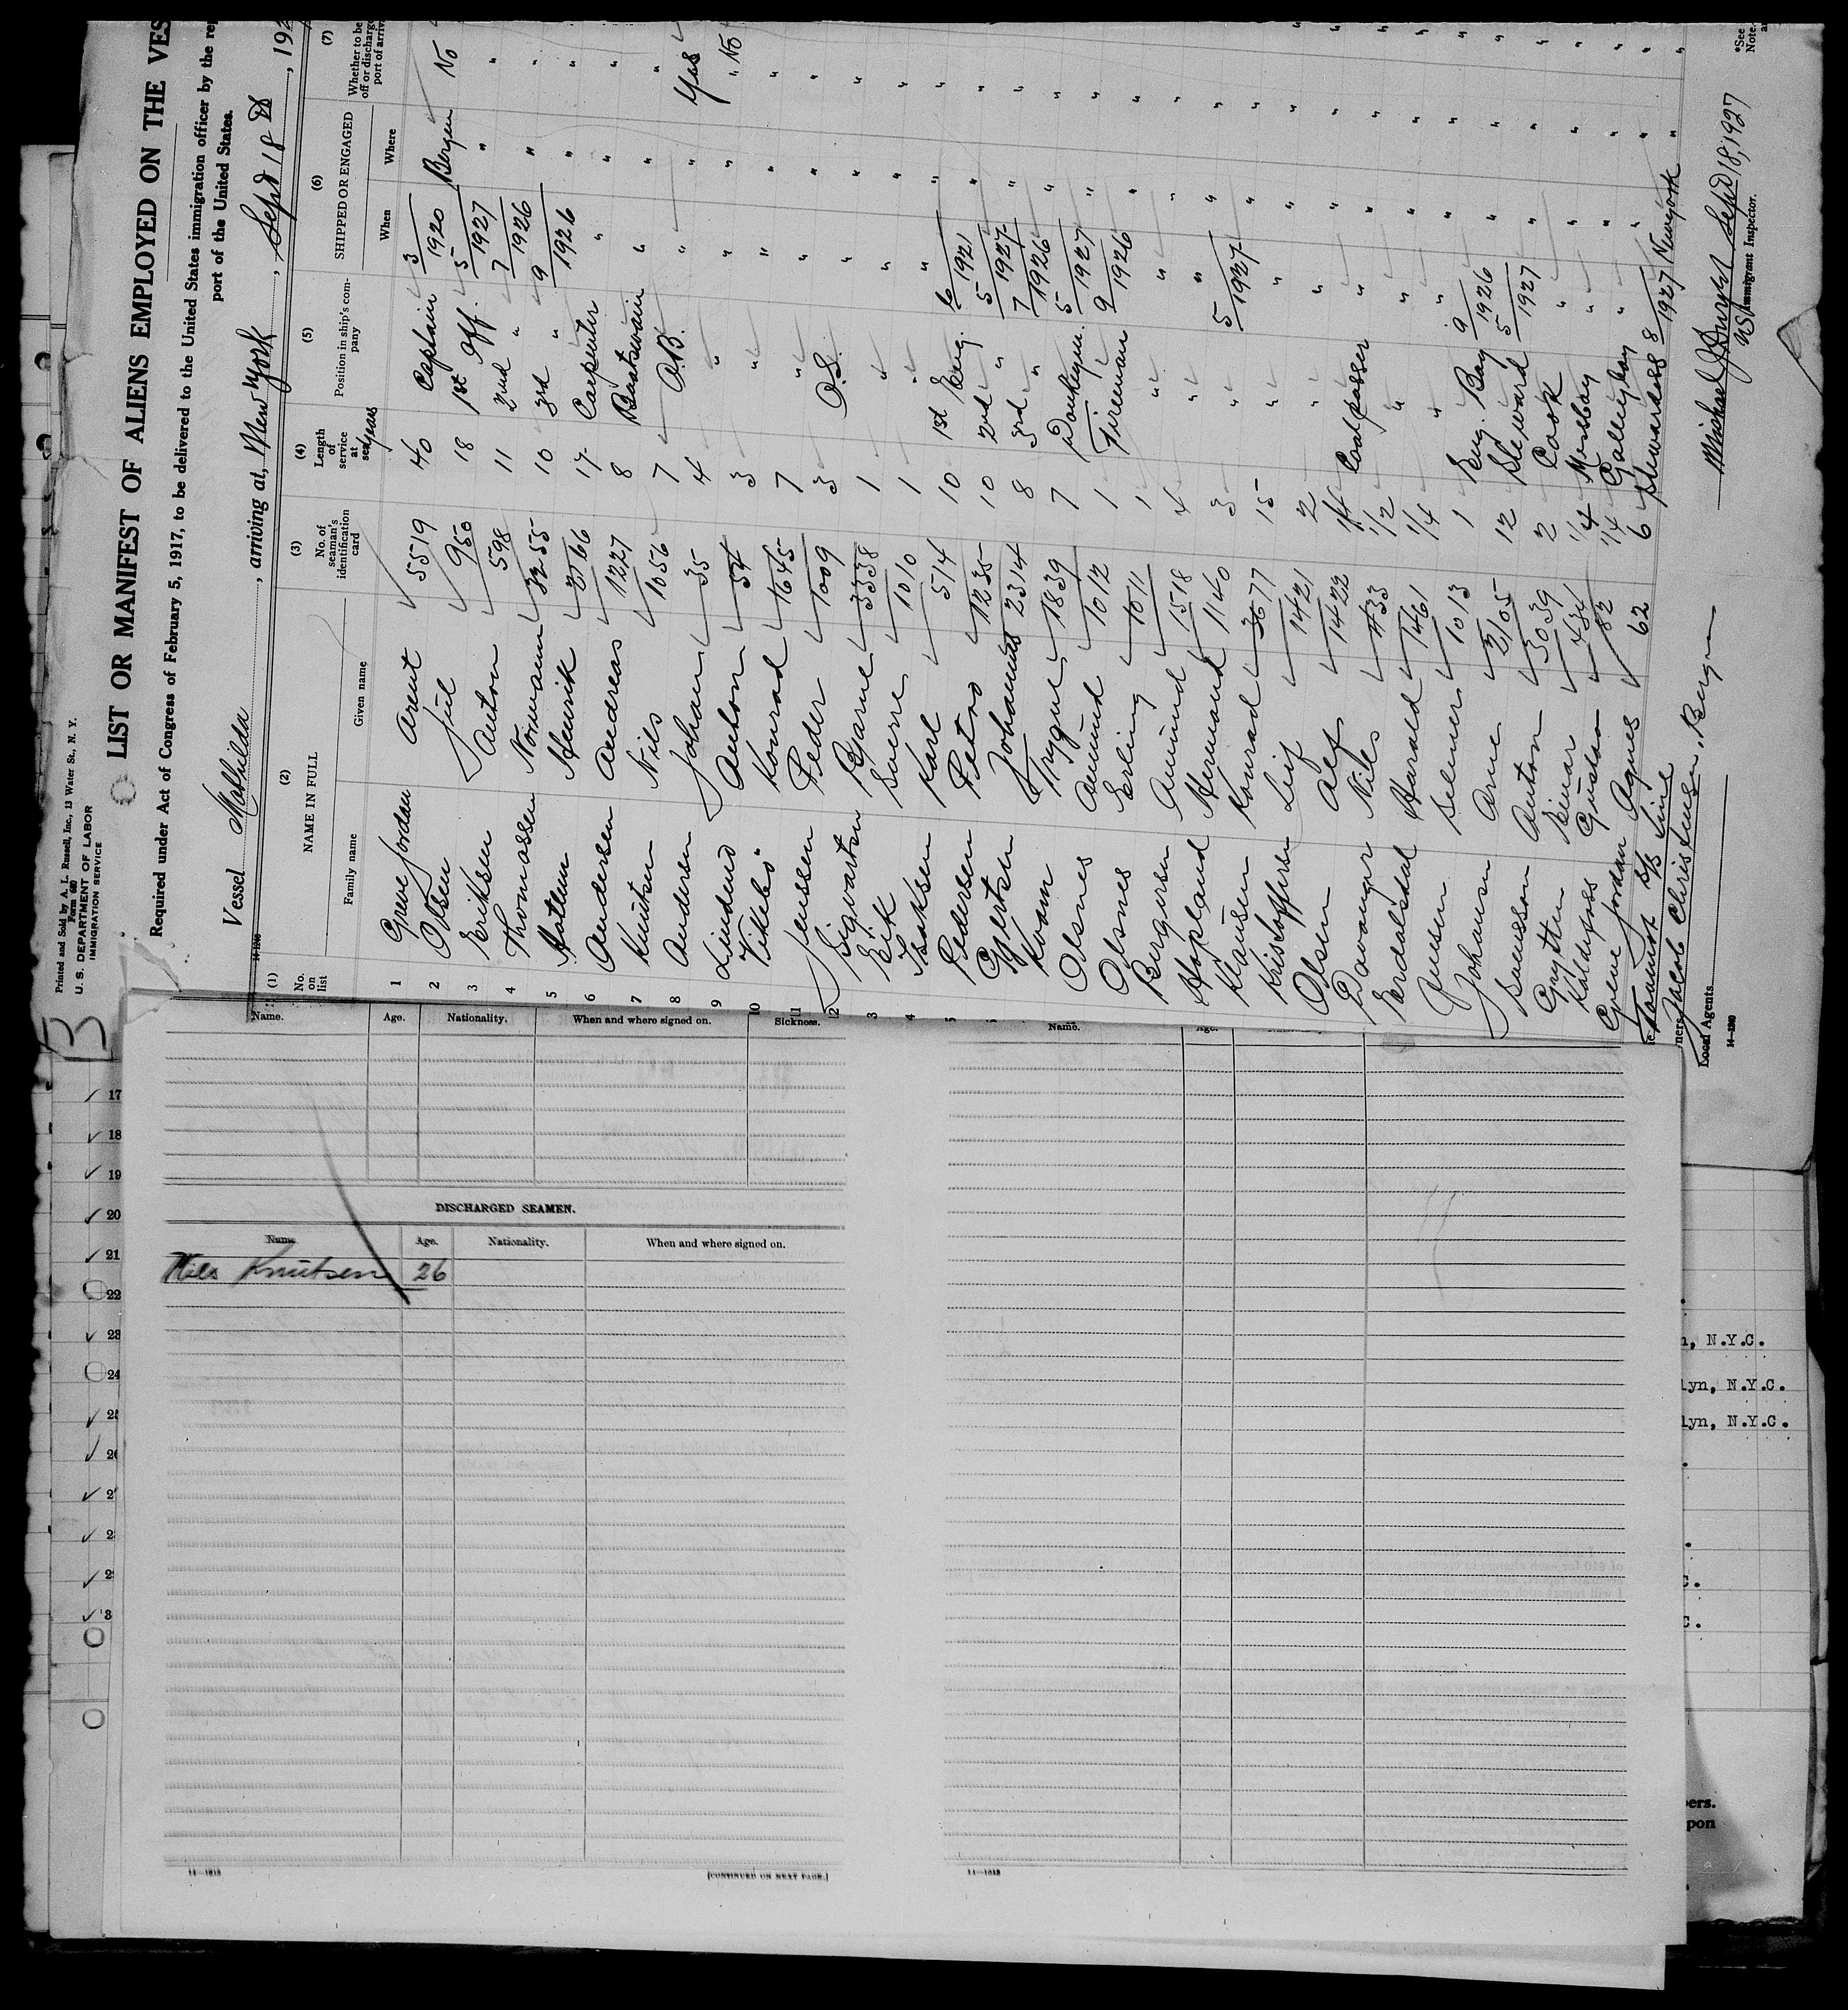 Printed and Sold by A. L. Russell, Inc., 13 Water St., N. Y.
Form 680
U. S. DEPARTMENT OF LABOR
IMMIGRATION SERVICE
LIST OR MANIFEST OF ALIENS EMPLOYED ON THE VES
Required under Act of Congress of February 5, 1917, to be delivered to the United States immigration officer by the rep
port of the United States.
Vessel Mathilda, arriving at, New York, Sept 18th, 192
14-1240
(1) (2) (3) (4) (5) (6) (7)
No. on list
NAME IN FULL
Family name Given name
No. of seaman's identification card
Length of service at sea years
Position in ship's company
SHIPPED OR ENGAGED
When Where
Whether to be off or discharge port of arriv
1 Greve Jordan Arent 5519 40 Captain 3/1920 Bergen No
2 Olsen Juel 950 18 1st Off. 5/1927 " "
3 Eriksen Anton 598 11 2nd " 7/1926 " "
4 Thomassen Normann 3255 10 3rd " 9/1926 " "
5 Henrik 2166 17 Carpenter " " "
6 Andersen Andreas 1227 8 Boatswain " " "
7 Knutsen Nils 1056 7 A.B. " " Yes
8 Andersen Johan 35 4 " " " No
9 Anton 54 3 " " " "
10 Konrad 1645 7 " " " "
11 Jenssen Peder 1009 3 O.S. " " "
12 Sigvartsen Bjarne 3338 1 " " " "
3 Eik Sverre 1010 1 " " " "
4 Isaksen Karl 514 10 1st Eng. 6/1921 " "
5 Pedersen Petro 1235 10 2nd " 5/1927 " "
Gjertsen Johannes 2314 8 3rd " 7/1926 " "
Kvam Trygve 1839 7 Donkeym. 5/1927 " "
Olsnes Amund 1012 1 Fireman 9/1926 " "
Olsnes Erling 1011 1 " " " "
Bergersen Amund 1518 4 " " " "
Hopland Hermand 1140 3 " 5/1927 " "
Klausen Konrad 3677 15 " " " "
Kristoffersen Leif 1421 2 " " " "
Olsen Alf 1422 Coalpasser " " "
Davanger Nils 433 1/2 " " " "
Erdalsdal Harald 1461 1/4 " " " "
Jensen Selmer 1013 1 Eng. Boy 9/1926 " "
Johansen Arne 2105 12 Steward 5/1927 " "
Svensson Anton 3039 2 Cook " " "
Grytten Einar 434 1/4 Messboy " " "
Koldefoss Gustav 82 1/4 Galleyboy " " "
Greve Jordan Agnes 62 6 Stewardess 8/1927 Newyork "
S/S Line
ners Jacob Christensen, Bergen
Local Agents
14-1240
Sept 18, 1927
US Immigrant Inspector.
*See
Note.
B
Name. Age. Nationality. When and where signed on. Sickness.
Name. Age.
DISCHARGED SEAMEN.
Name. Age. Nationality. When and where signed on.
Nils Knutsen 26
11—1313
[CONTINUED ON NEXT PAGE.]
11—1313
17
18
19
20
21
22
23
24
25
26
2
2
2
3
n, N.Y.C.
lyn, N.Y.C.
lyn, N.Y.C.
c.
c.
pers.
pon